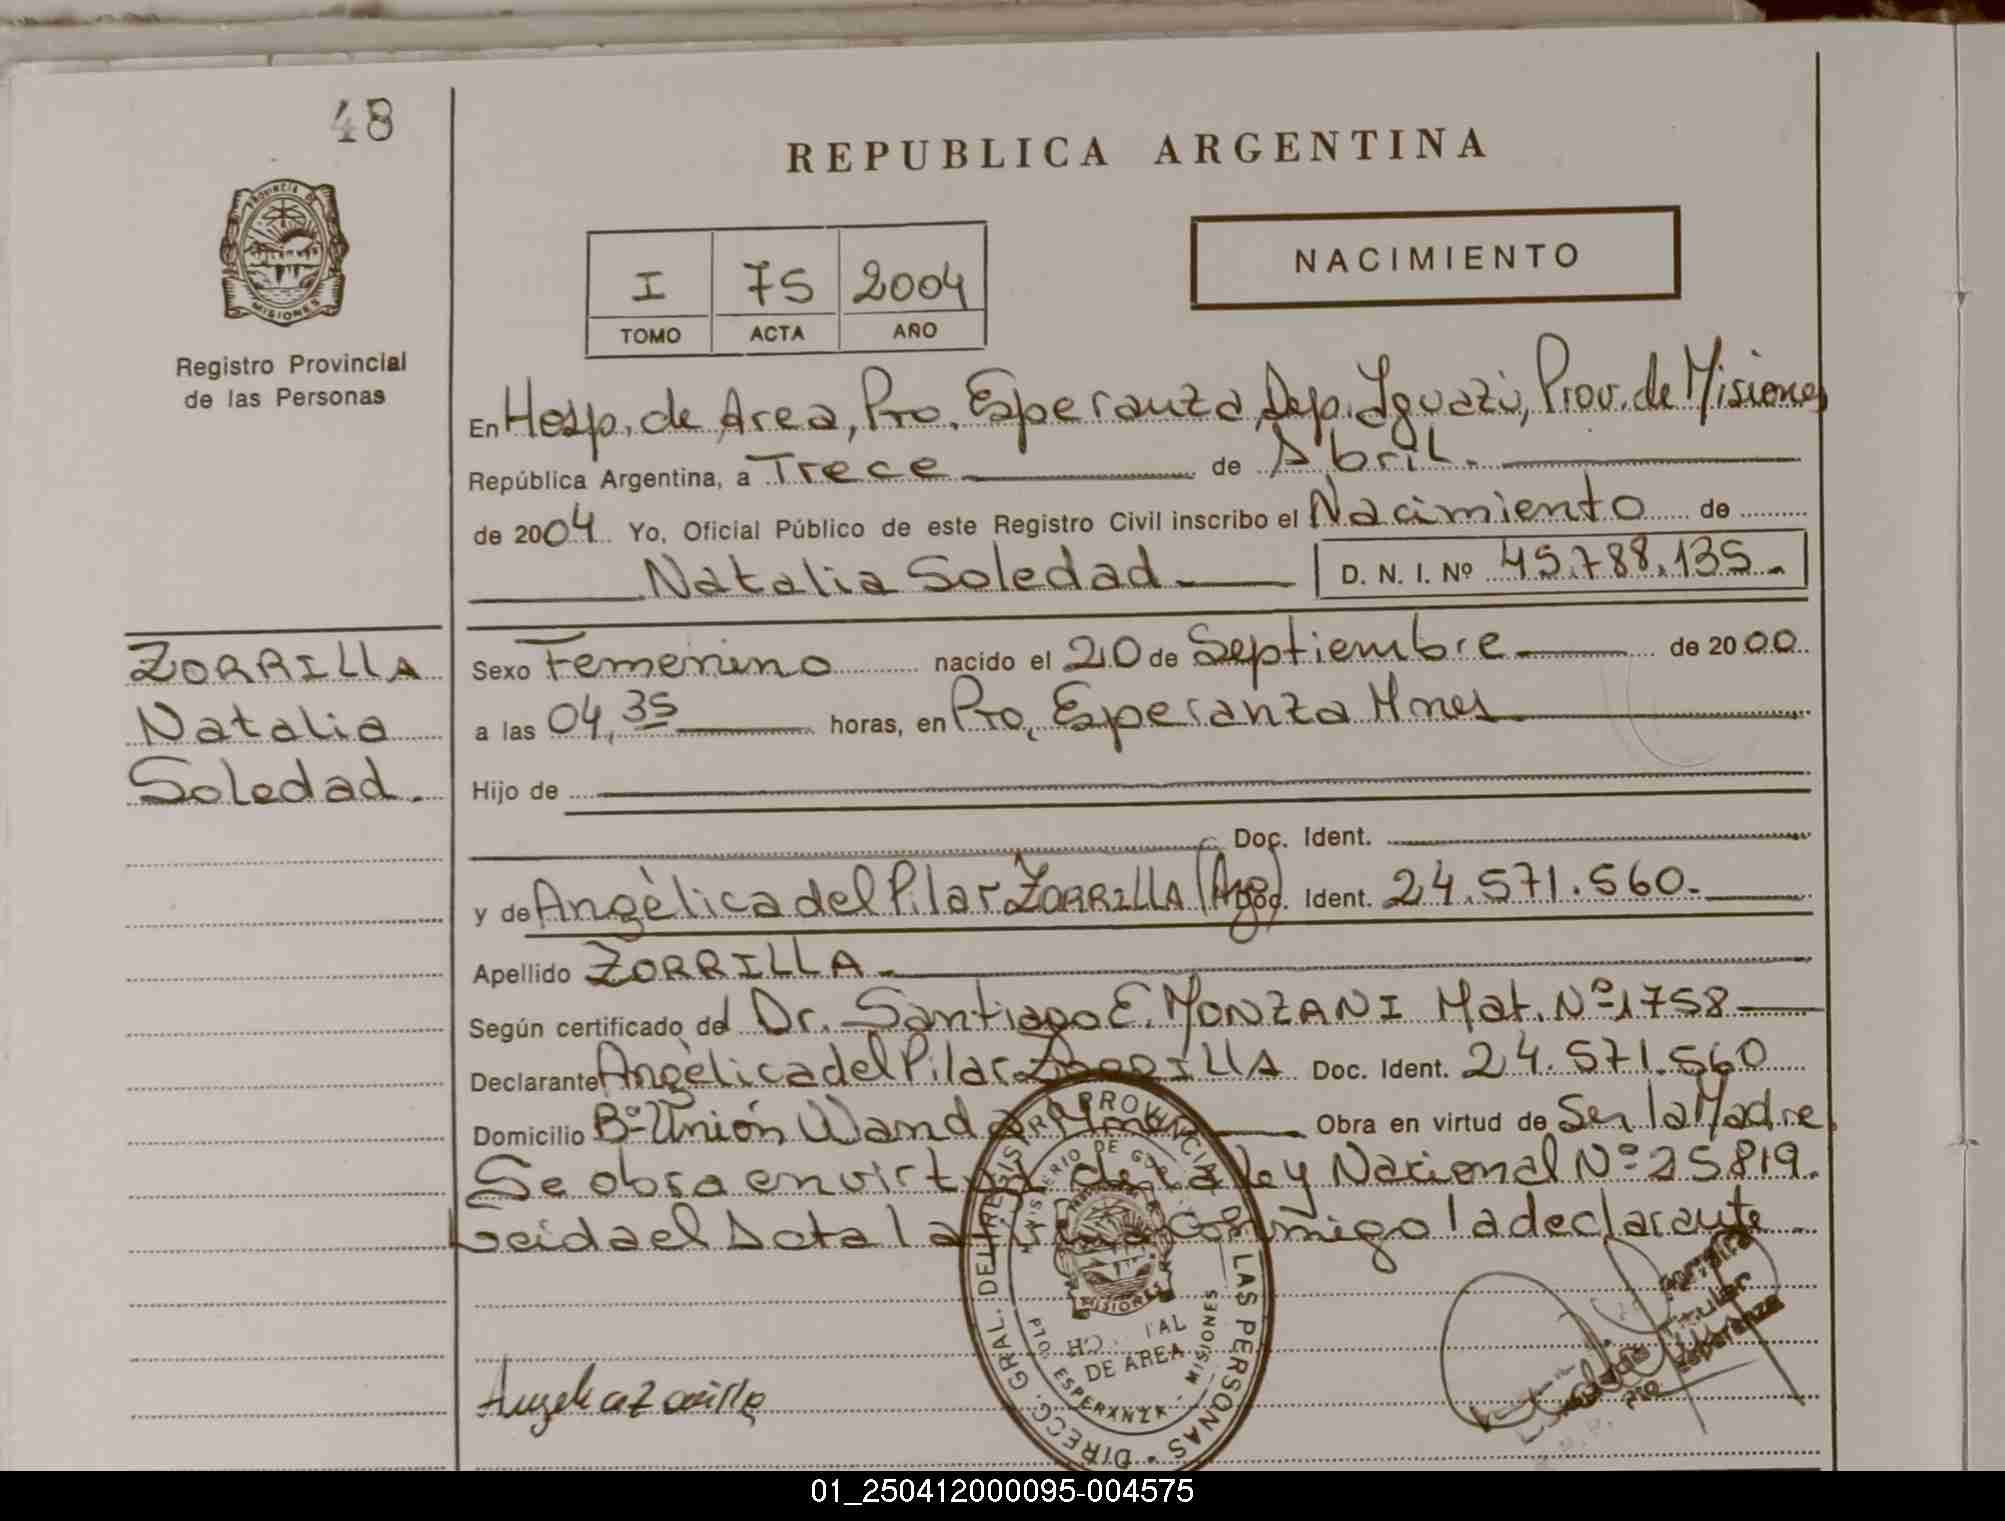 48
REPUBLICA ARGENTINA
PROVINCIA DE
MISIONES
Registro Provincial
de las Personas
I 75 2004
TOMO ACTA AÑO
NACIMIENTO
En Hosp. de Area, Pto. Esperanza, Dep. Iguazú, Prov. de Misiones
República Argentina, a Trece de Abril.
de 2004 Yo, Oficial Público de este Registro Civil inscribo el Nacimiento de
Natalia Soledad D. N. I. Nº 45.788.135.-
ZORRILLA
Natalia
Soledad.
Sexo Femenino nacido el 20 de Septiembre de 2000
a las 04,35 horas, en Pto, Esperanza Mnes
Hijo de
Doc. Ident.
y de Angèlica del Pilar ZORRILLA (Arg) Doc. Ident. 24.571.560.-
Apellido ZORRILLA.-
Según certificado del Dr. Santiago E. MONZANI Mat. Nº 1758
Declarante Angèlica del Pilar ZORRILLA Doc. Ident. 24.571.560
Domicilio Bº Unión Wanda Mnes Obra en virtud de Ser la Madre
Se obra en virtud de la Ley Nacional Nº 25819.
Leida el Acta la firma conmigo la declarante
DIRECC. GRAL. DEL REGISTRO PROVINCIAL DE LAS PERSONAS
MINISTERIO DE
MISIONES
DE AREA
PTO. ESPERANZA - MISIONES
Angelica Zorrilla
Titular
Pto. Esperanza
01_250412000095-004575